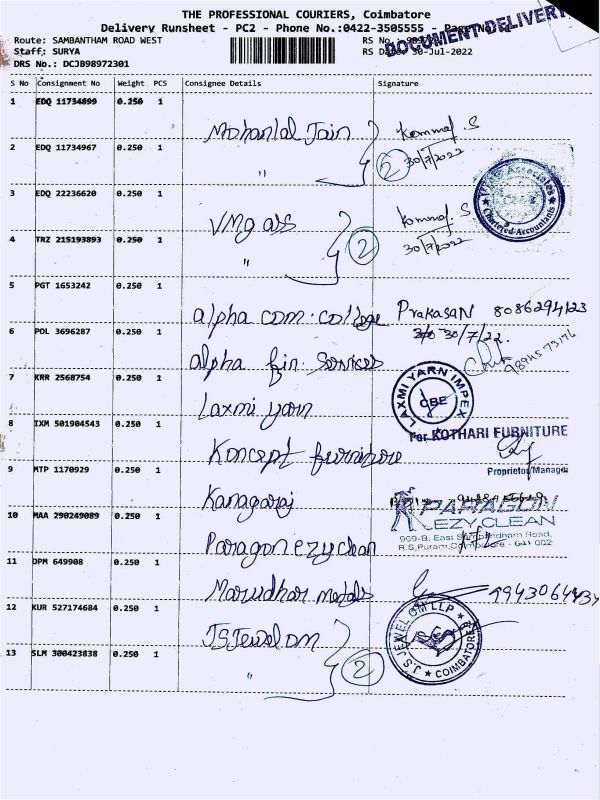 THE PROFESSIONAL COURIERS, Coimbatore
Delivery Runsheet - PC2 - Phone No.:0422-3505555 - Page No
DOCUMENT DELIVERY
Route: SAMBANTHAM ROAD WEST
RS No.
Staff: SURYA
RS Date: 30-Jul-2022
DRS No.: DCJB98972301
S No Consignment No Weight PCS Consignee Details Signature
1 EDQ 11734899 0.250 1
Mohanlal Jain
2 EDQ 11734967 0.250 1
"
2
30/7/2022
3 EDQ 22236620 0.250 1
Associates
Chartered Accountants
VMg ass
4 TRZ 215193893 0.250 1
"
2
30/7/2022
5 PGT 1653242 0.250 1
alpha com. college Prakasan 8086294123
6 POL 3696287 0.250 1
30/7/22.
alpha fin. Services
7 KRR 2568754 0.250 1
LAXMI YARN IMPEX
CBE
Laxmi yarn
8 IXM 501904543 0.250 1
For KOTHARI FURNITURE
Koncept furniture
Proprietor/Manager
9 MTP 1170929 0.250 1
Kanagaraj
10 MAA 290249089 0.250 1
PARAGON
EZY CLEAN
909-B, East Sambandham Road,
R.S.Puram, Coimbatore - 641 002
Paragon ezy clean
11 DPM 649908 0.250 1
Marudhar metals
12 KUR 527174684 0.250 1
J.S. JEWEL OM LLP
COIMBATORE
JSJewel om
13 SLM 300423838 0.250 1
"
2